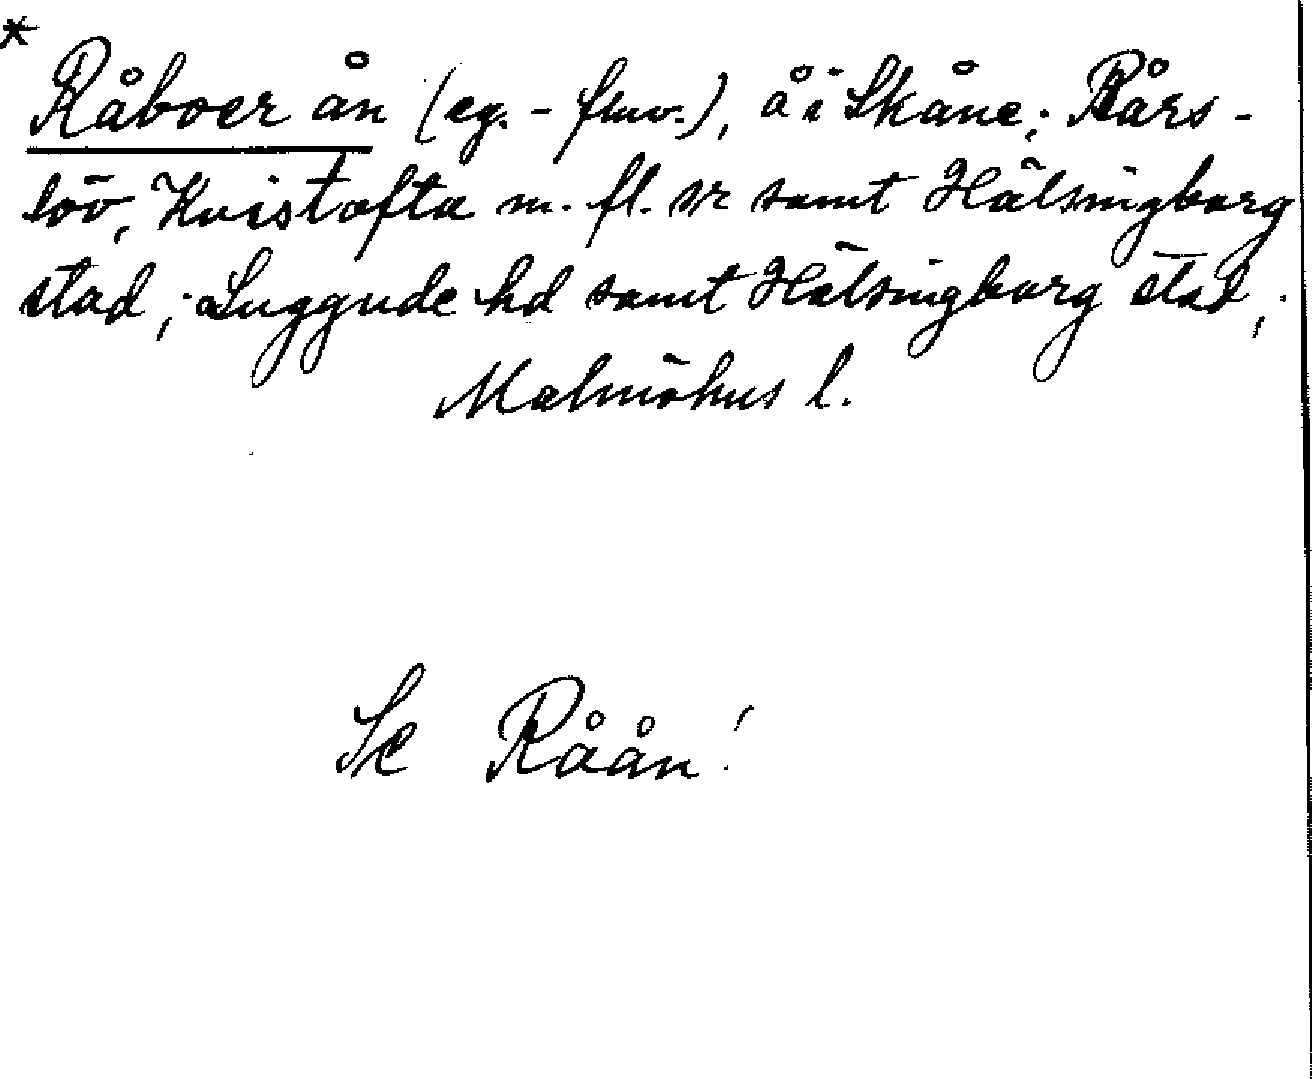 *
Råboer ån (eg. - fluv.), å i Skåne; Rårs-
löv, Kvistofta m. fl. sr samt Hälsingborg
stad; Luggude hd samt Hälsingborg stad,
Malmöhus l.
Se Råån!